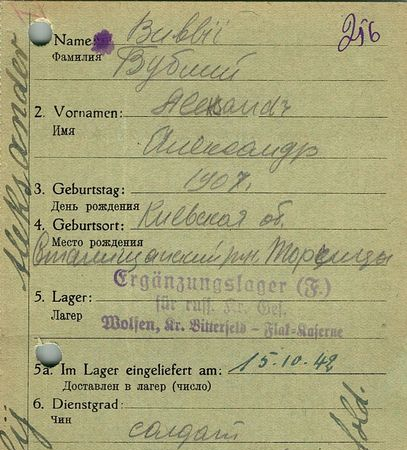 Name: Bubbii
256
Фамилия Бублий
2. Vornamen: Alexandr
Имя
Александр
3. Geburtstag: 1907.
День рождения
4. Geburtsort: Киевская об.
Место рождения
Ergänzungslager (F.)
5. Lager: für russ. Kr. Gef.
Лагер
Wolfen, Kr. Bitterfeld – Flak-Kaserne
5a. Im Lager eingeliefert am: 15.10.42
Доставлен в лагер (число)
6. Dienstgrad:
Чин
солдат
Aleksander